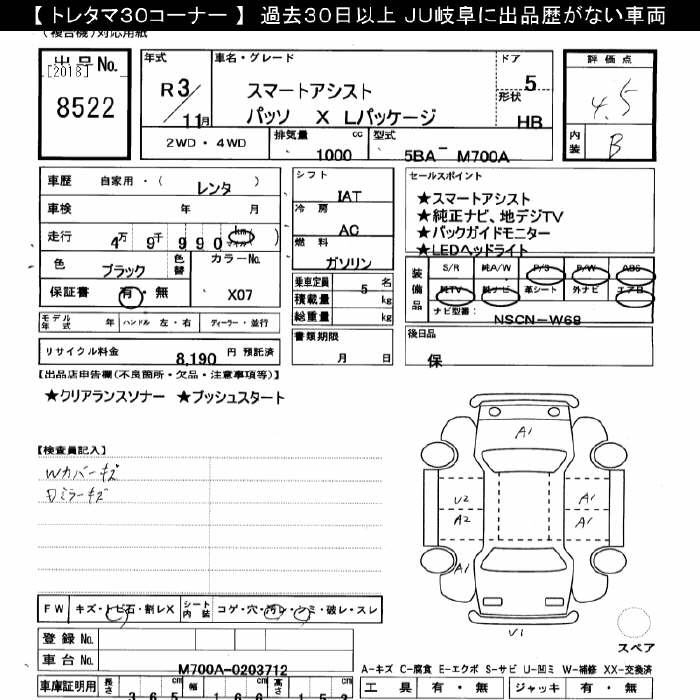 【 トレタマ30コーナー 】 過去30日以上 JU岐阜に出品歴がない車両
(複合機)対応用紙
出品No.
[2018]
8522
年式
R 3/11月
車名・グレード
スマートアシスト
パッソ X Lパッケージ
ドア
5
形状
HB
評価点
4.5
内装
B
2WD・4WD
排気量
1000 cc
型式
5BA- M700A
車歴 自家用・( レンタ )
車検 年 月
走行 4万 9千 9 9 0 (km マイル)
色 ブラック 色替
カラーNo.
X07
保証書 有・無
モデル年式 年 ハンドル 左・右 ディーラー・並行
リサイクル料金 8,190 円 預託済
シフト
IAT
冷房
AC
燃料
ガソリン
乗車定員 5 名
積載量 kg
総重量 kg
書類期限
月 日
セールスポイント
★スマートアシスト
★純正ナビ、地デジTV
★バックガイドモニター
★LEDヘッドライト
装備品
S/R 純A/W P/S P/W ABS
純TV 純ナビ 革シート 外ナビ エアB
ナビ型番: NSCN-W68
後日品
保
【出品店申告欄(不良箇所・欠品・注意事項等)】
★クリアランスソナー ★プッシュスタート
【検査員記入】
Wカバーキズ
Dミラーキズ
A1
U2
A2
A1
A1
A1
A1
U1
スペア
FW キズ・トビ石・割レX シート内装 コゲ・穴・汚レ・シミ・破レ・スレ
登録 No.
車台 No. M700A-0203712
A-キズ C-腐食 E-エクボ S-サビ U-凹ミ W-補修 XX-交換済
車庫証明用 長さ 365 cm 幅 166 cm 高さ 153 cm
工具 有・無 ジャッキ 有・無